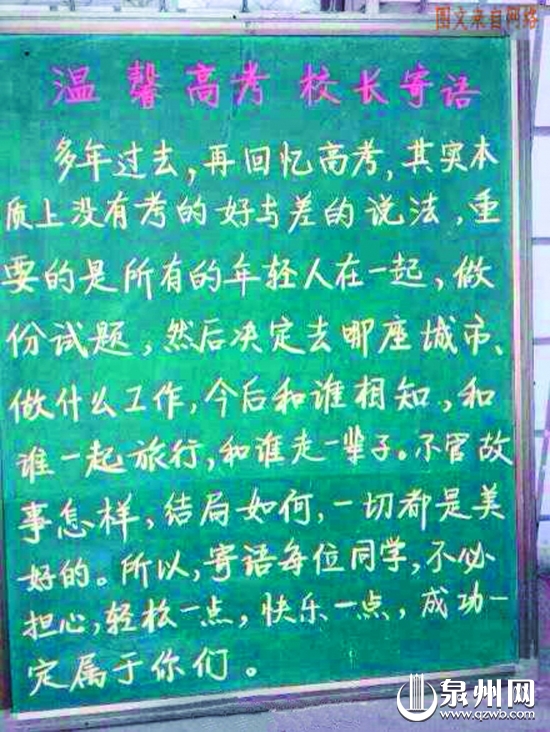 图文来自网络
温馨高考 校长寄语
多年过去,再回忆高考,其实本
质上没有考的好与差的说法,重
要的是所有的年轻人在一起,做
份试题,然后决定去哪座城市、
做什么工作,今后和谁相知,和
谁一起旅行,和谁走一辈子。不管故
事怎样,结局如何,一切都是美
好的。所以,寄语每位同学,不必
担心,轻松一点,快乐一点,成功一
定属于你们。
泉州网
www.qzwb.com